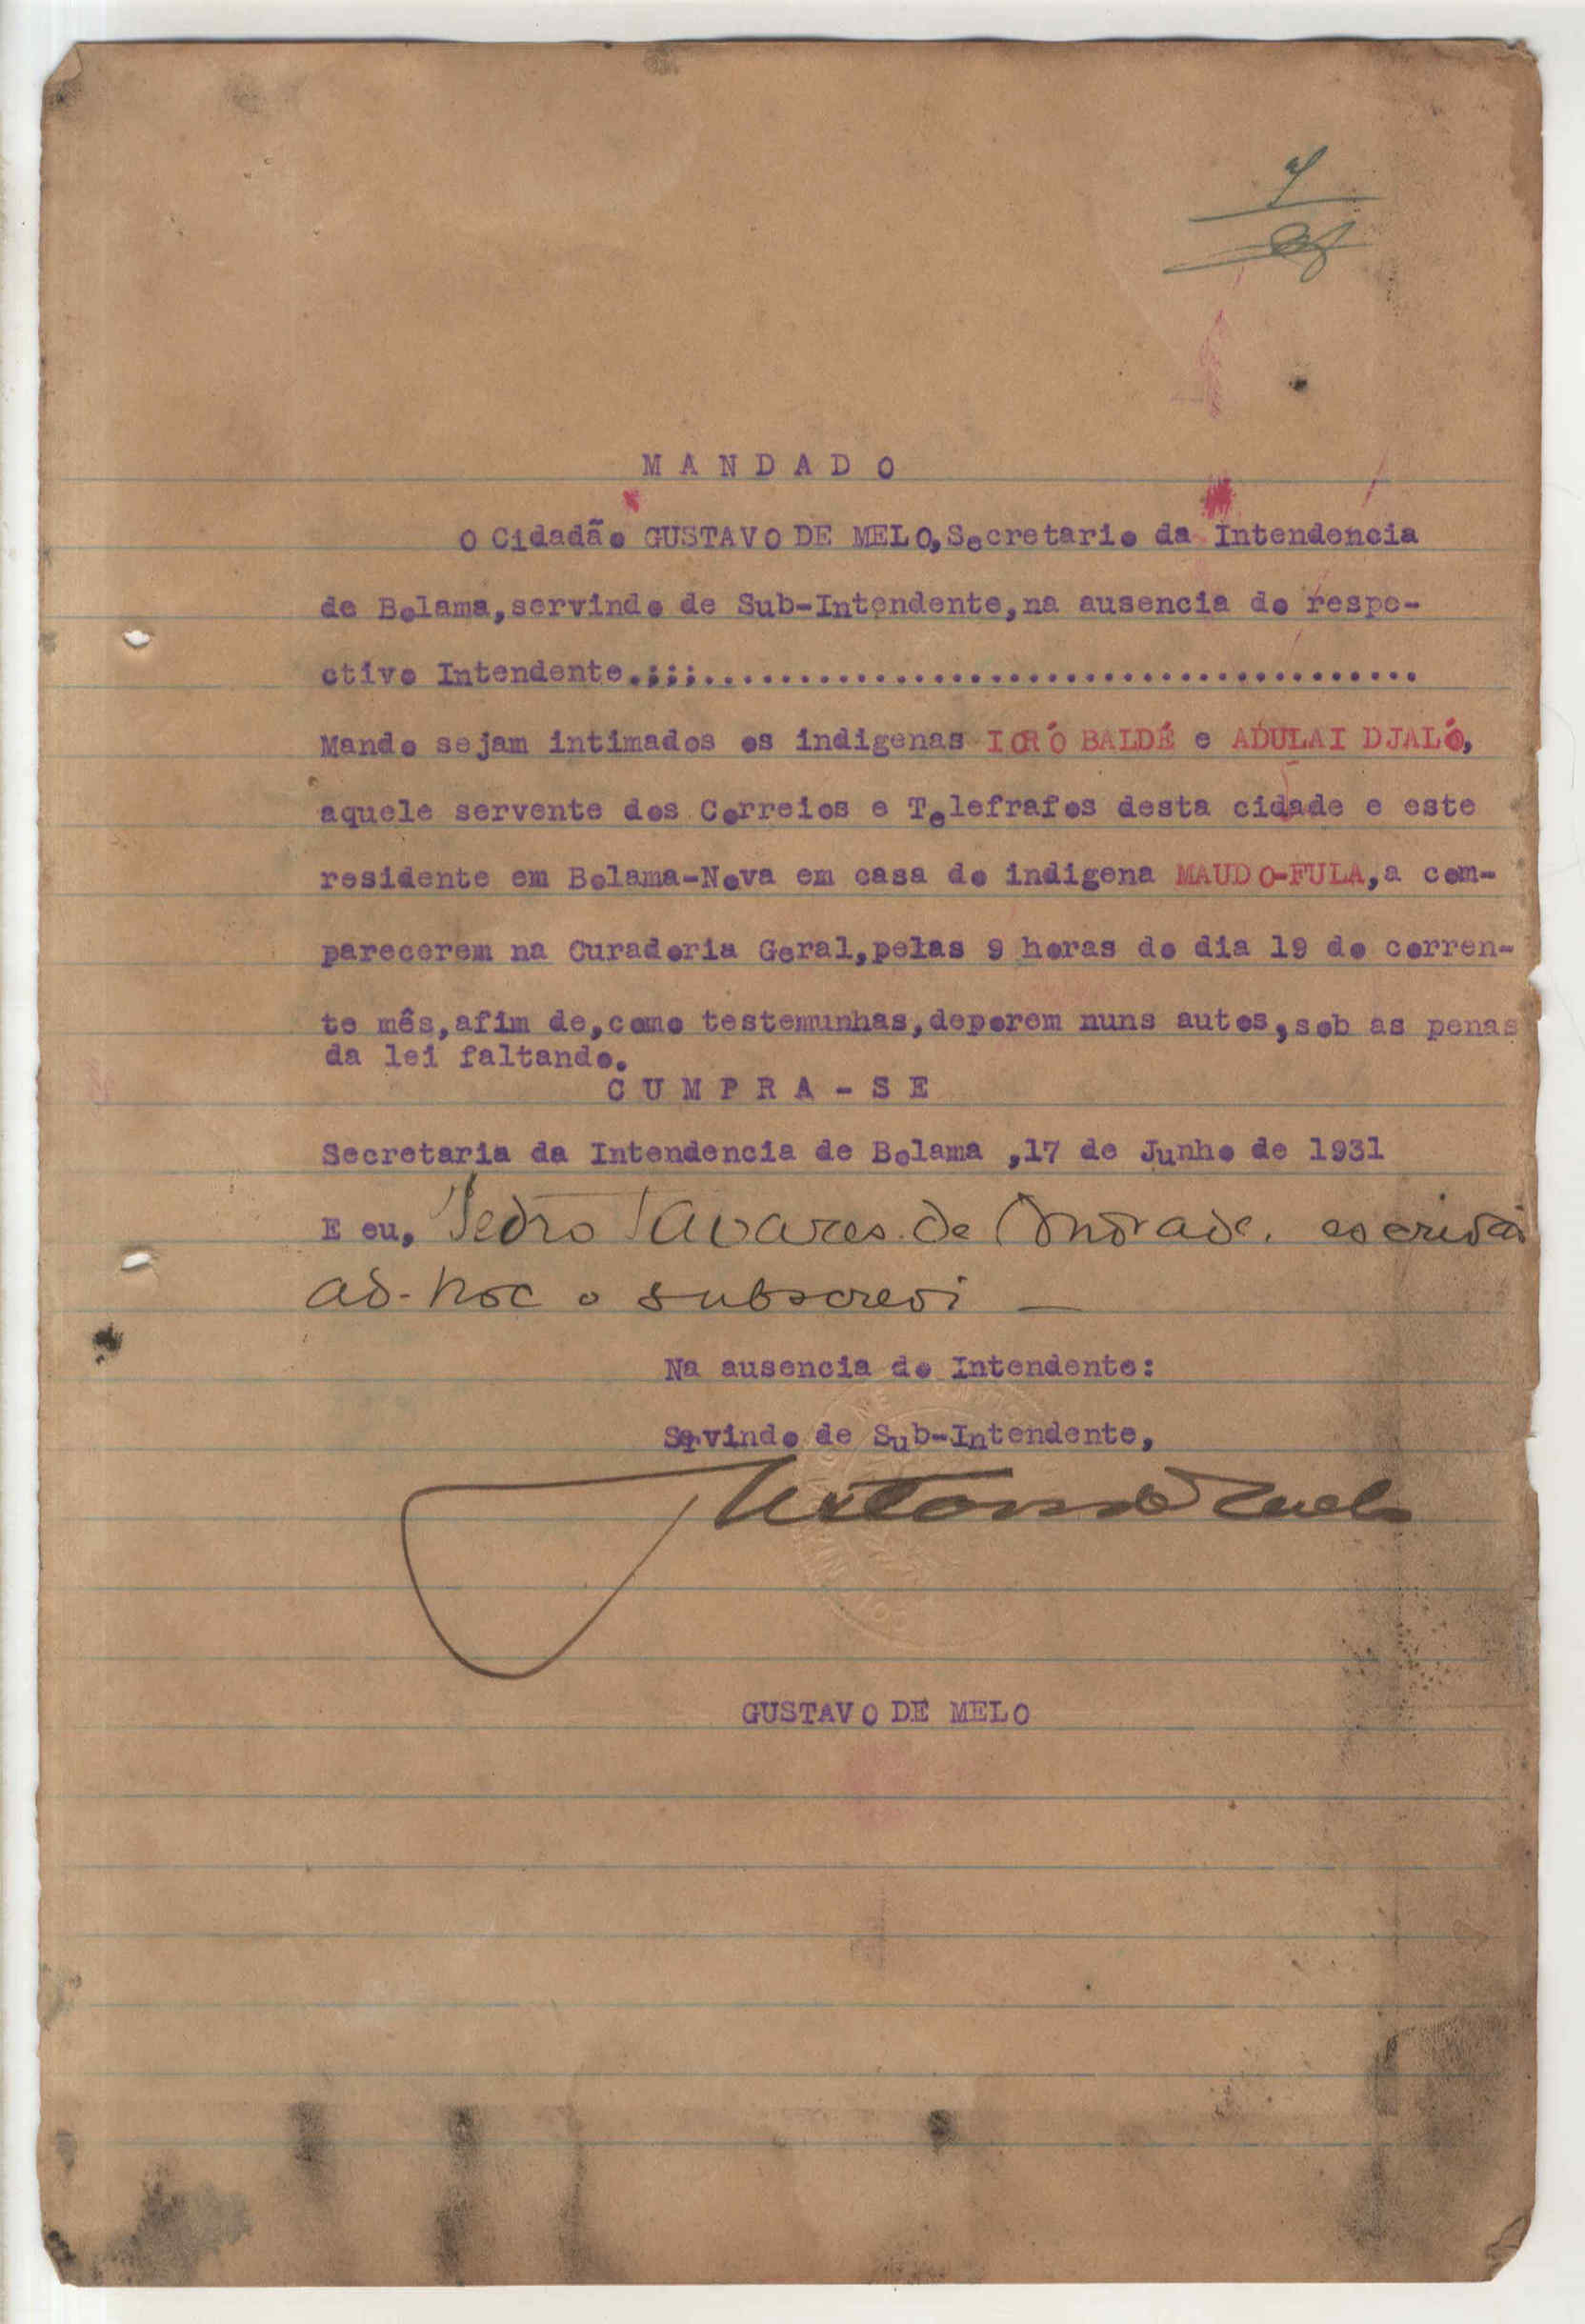 M A N D A D O
O Cidadão GUSTAVO DE MELO, Secretario da Intendencia
de Bolama, servindo de Sub-Intendente, na ausencia do respe-
ctivo Intendente.;;;......................................
Mando sejam intimados os indigenas IORÓ BALDÉ e ADULAI DJALÓ,
aquele servente dos Correios e Telefrafos desta cidade e este
residente em Bolama-Nova em casa do indigena MAUDO-FULA, a com-
parecerem na Curadoria Geral, pelas 9 horas do dia 19 do corren-
te mês, afim de, como testemunhas, deporem nuns autos, sob as penas
da lei faltando.
C U M P R A - S E
Secretaria da Intendencia de Bolama ,17 de Junho de 1931
E eu, Pedro Tavares de Andrade, escrivão
ad-hoc o subscrevi —
Na ausencia do Intendente:
Servindo de Sub-Intendente,
GUSTAVO DE MELO